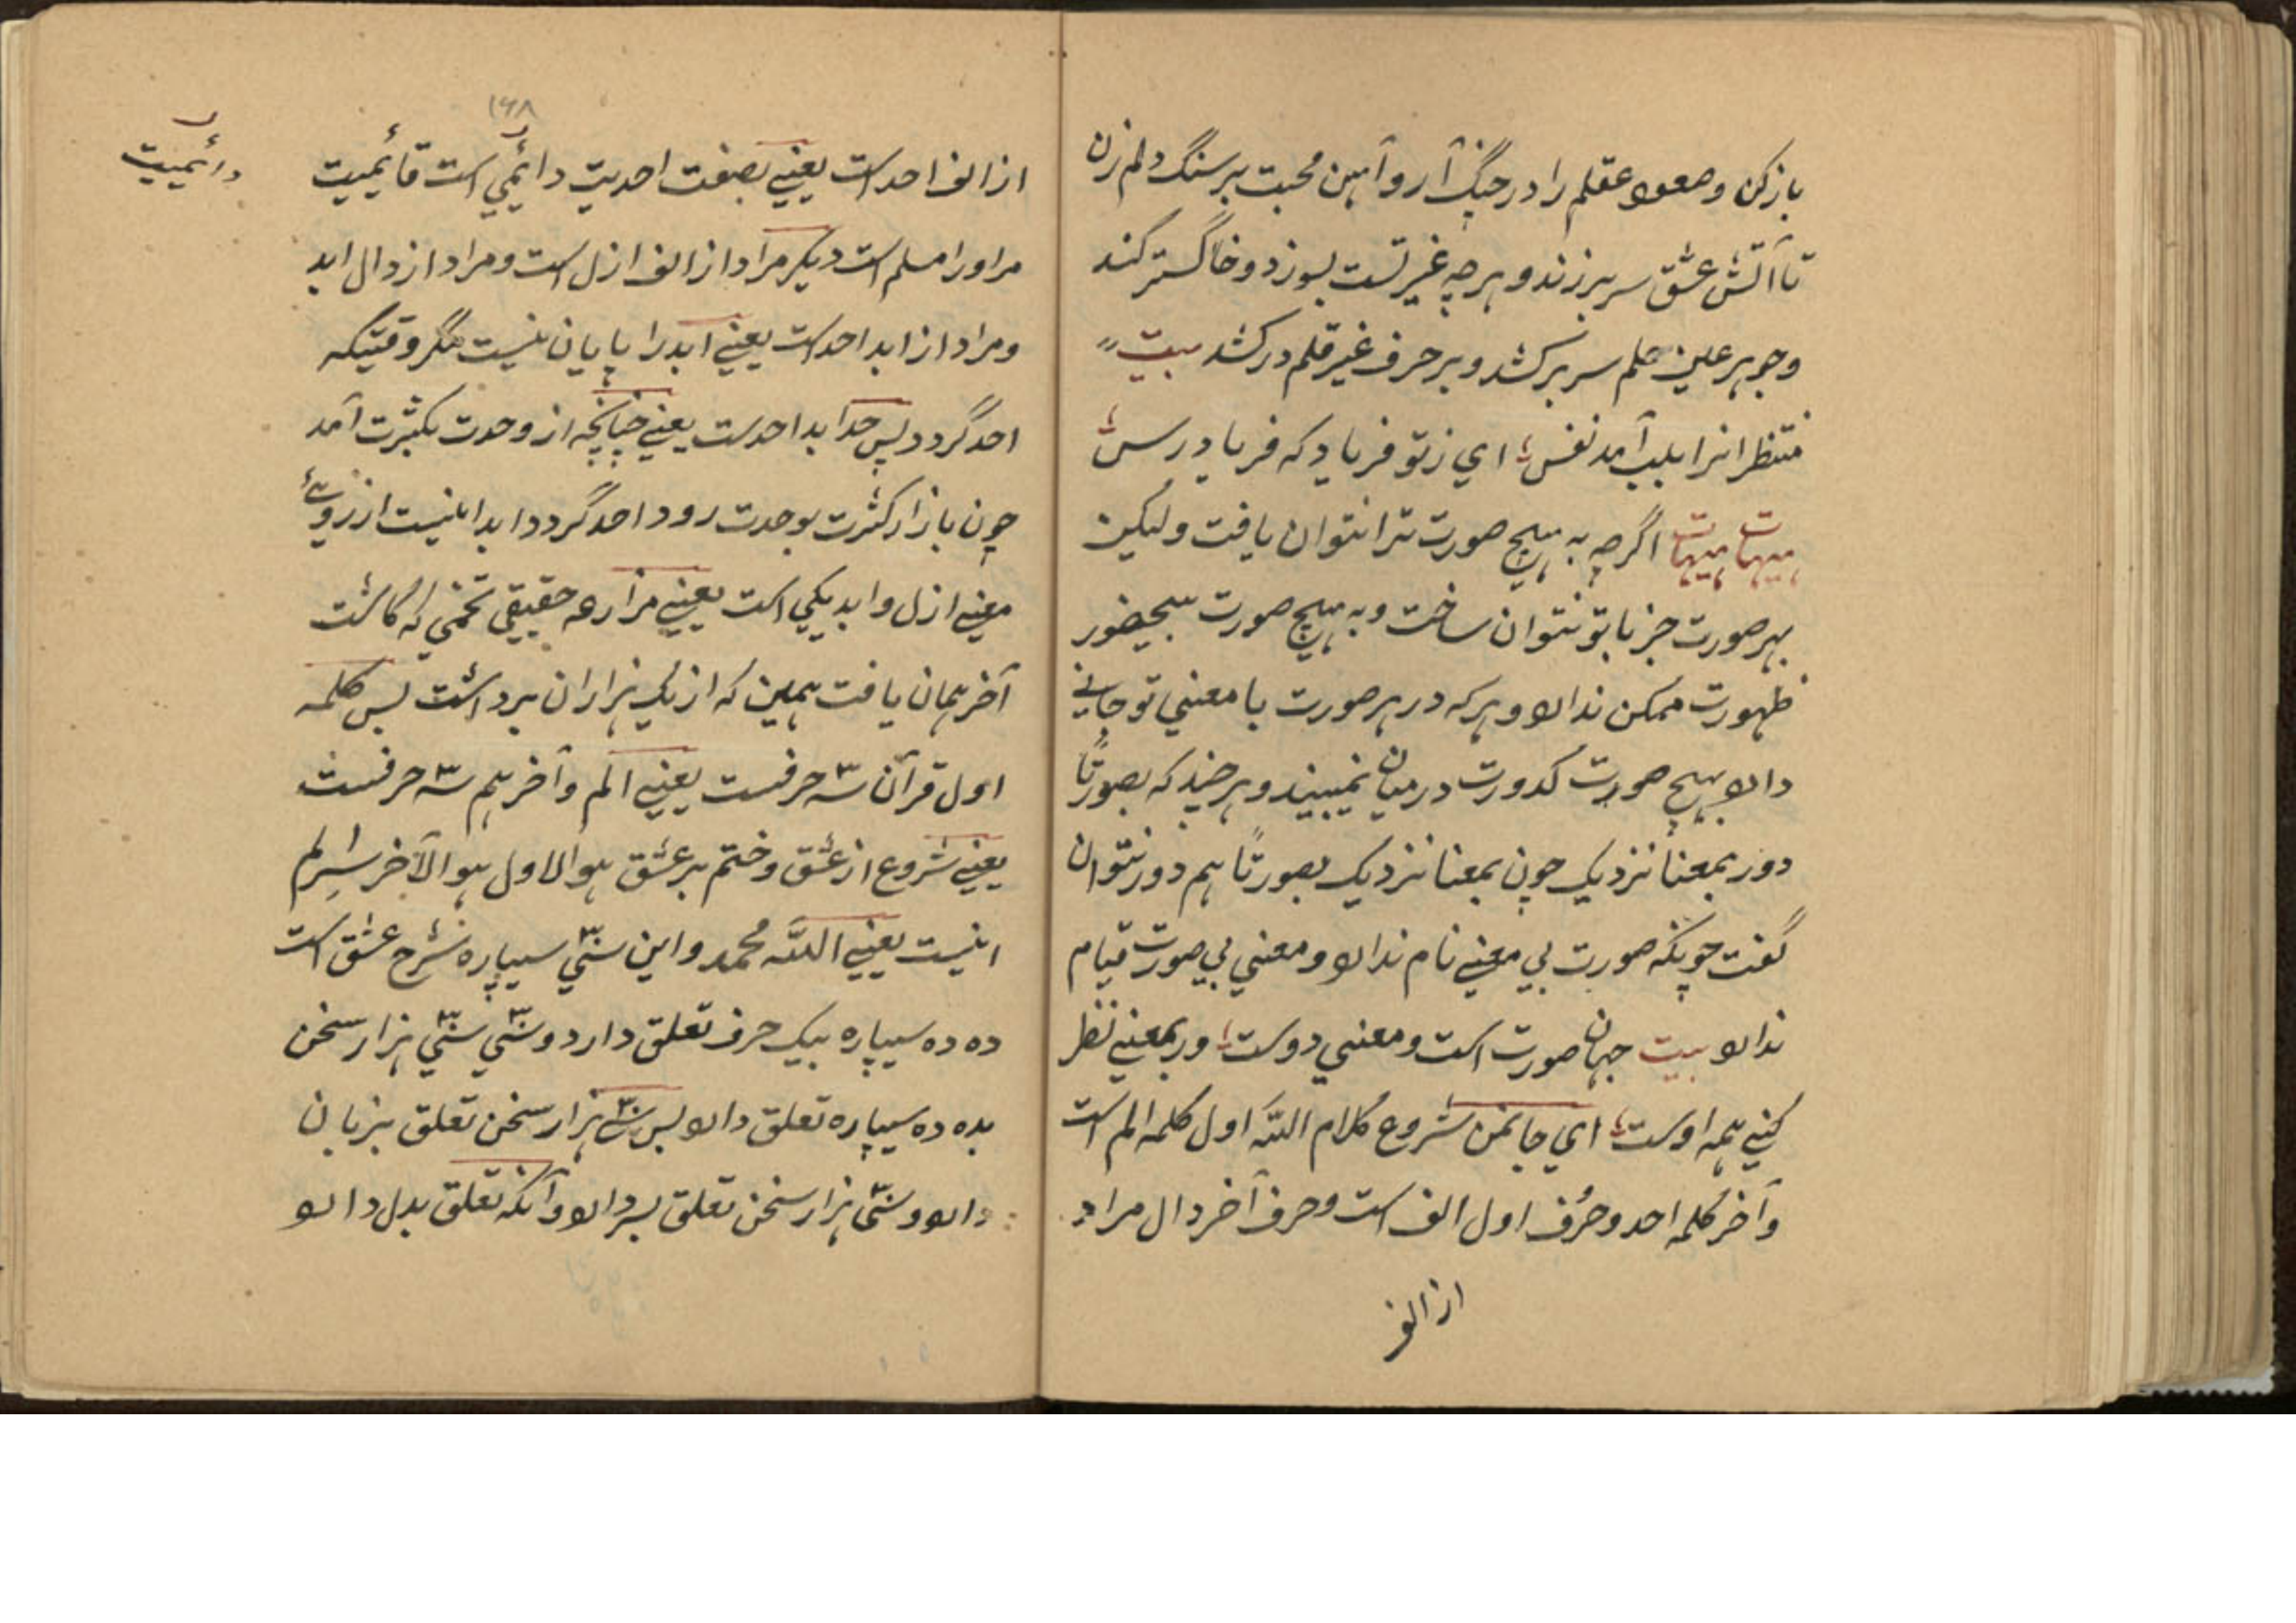 باز کن و صعوه عقلم را در چنگ آر و آهن محبت بر سنگ دلم زن
تا آتش عشق سر بر زند و هر چه غیر تست بسوزد و خاکستر کند
و جوهر عین علم سر بر کشد و بر حرف غیر قلم در کشد بیت
منتظرانرا بلب آمد نفس؛ ای ز تو فریاد که فریاد رس؛
هیهات هیهات اگرچه به هیچ صورت ترا نتوان یافت ولیکن
بهر صورت جز با تو نتوان ساخت و به هیچ صورت بیحضور
ظهورت ممکن ندارد و هر که در هر صورت با معنی تو جانی
دارد بهیچ صورت کدورت در میان نمیبیند و هر چند که بصورتًا
دور بمعناً نزدیک چون بمعنا نزدیک بصورتًا هم دور نتوان
گفت چونکه صورت بی معنی نام ندارد و معنی بی صورت قیام
ندارد بیت جهان صورت است و معنی دوست؛ ور بمعنی نظر
کنی همه اوست؛ ای جانمن شروع کلام اللّه اول کلمه الم است
و آخر کلمه احد و حرف اول الف است و حرف آخر دال مراد
از الف
۱۶۸
از الف احد است یعنی بصفت احدیت دائمی است قائیمیت
دائیمیت
مر او را مسلم است دیگر مراد از الف ازل است و مراد از دال ابد
و مراد از ابد احد است یعنی ابد را پایان نیست مگر وقتیکه
احد گردد پس حد ابد احدست یعنی چنانچه از وحدت بکثرت آمد
چون باز از کثرت بوحدت رود احد گردد ابد اینیست از روئے
معنی ازل و ابد یکی است یعنی مزارعه حقیقی تخمی که کاشت
آخر همان یافت همین که از یک هزاران برداشت پس کلمه
اول قرآن سه حرفست یعنی الم و آخر هم سه حرفست
یعنی شروع از عشق و ختم بر عشق هو الاول هو الآخر سر الم
اینست یعنی اللّه محمد و این سی سیپاره شرح عشق است
ده ده سیپاره بیک حرف تعلق دارد و سی سی هزار سخن
بده ده سیپاره تعلق دارد پس سی هزار سخن تعلق بزبان
دارد و سی هزار سخن تعلق بسر دارد و آنکه تعلق بدل دارد